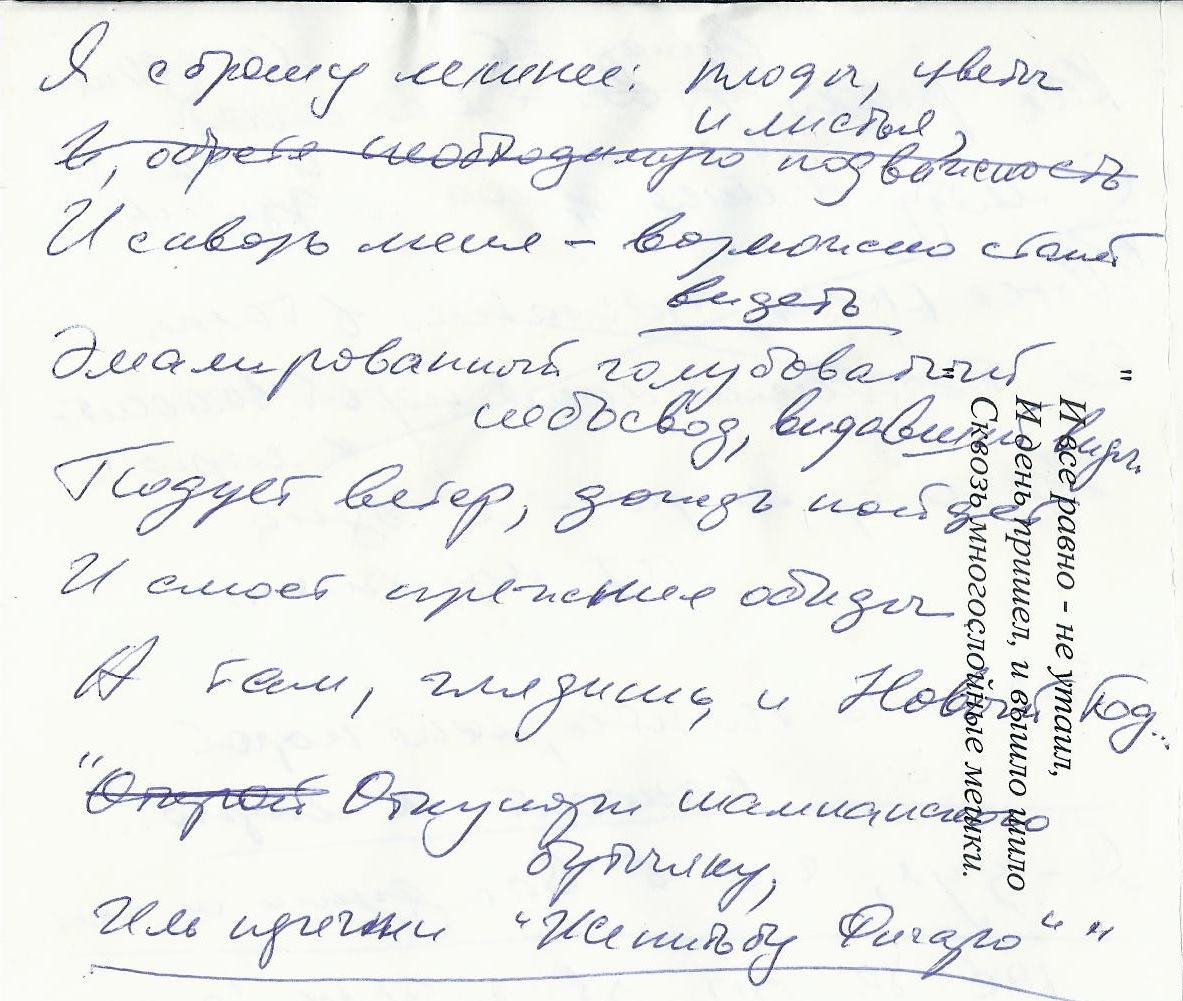 Я сброшу лишнее: плоды, цветы
и листья,
И, обретя необходимую подвижность
И сквозь меня - возможно станет
видеть
Эмалированный голубоватый
небосвод, видавший виды.
Подует ветер, дождь пойдет
И смоет прежние обиды
А там, глядишь, и Новый Год...
"Открой Откупори шампанского
бутылку,
Иль перечти "Женитьбу Фигаро" "
"И все равно - не утаил,
И день пришел, и вышло шило
Сквозь многослойные мешки.